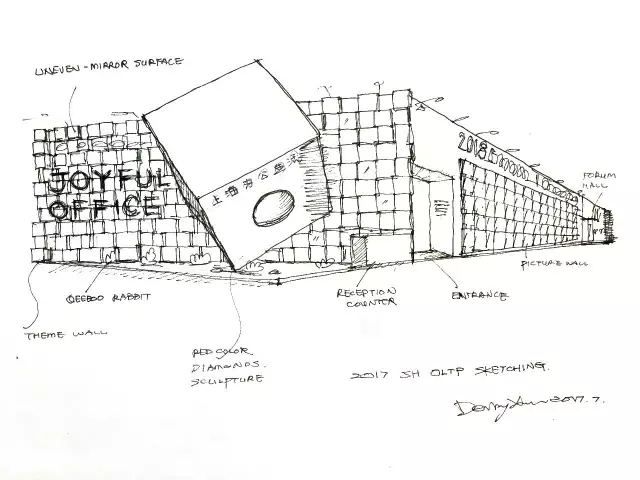 UNEVEN-MIRROR SURFACE
JOYFUL
OFFICE
上海办公
2018
FORUM
HALL
QEEBOO RABBIT
RECEPTION
COUNTER
ENTRANCE
PICTURE WALL
THEME WALL
RED COLOR
DIAMONDS.
SCULPTURE
2017 SH OLTP SKETCHING.
2017.7.